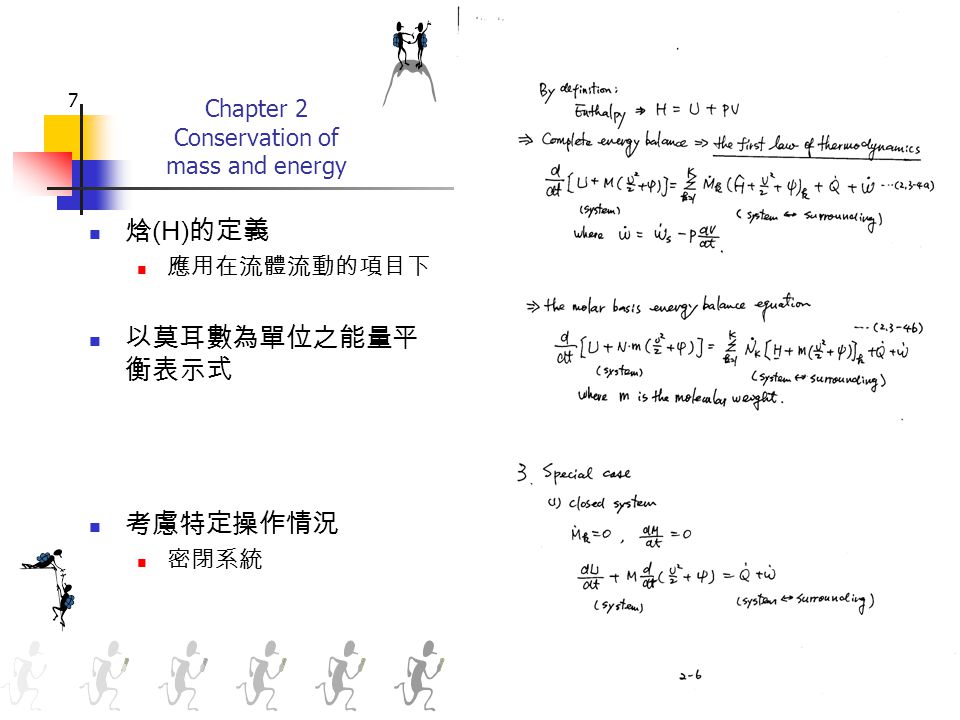 7
Chapter 2
Conservation of
mass and energy
焓(H)的定義
應用在流體流動的項目下
以莫耳數為單位之能量平
衡表示式
考慮特定操作情況
密閉系統
By definition:
Enthalpy ⇒ H = U + PV
⇒ Complete energy balance ⇒ the first law of thermodynamics
d/dt [U + M(υ²/2 + φ)] = Σ_{k=1}^{K} Ṁ_k (Ĥ + υ²/2 + φ)_k + Q̇ + ẇ ---(2.3-4a)
(system) (system ↔ surrounding)
where ẇ = ẇ_s - P dV/dt.
⇒ the molar basis energy balance equation
---(2.3-4b)
d/dt [U + N·m(υ²/2 + φ)] = Σ_{k=1}^{K} Ṅ_k [H + m(υ²/2 + φ)]_k + Q̇ + ẇ
(system) (system ↔ surrounding)
where m is the molecular weight.
3. Special case
(1) closed system
Ṁ_k = 0, dM/dt = 0
dU/dt + M d/dt (υ²/2 + φ) = Q̇ + ẇ
(system) (system ↔ surrounding)
2-6